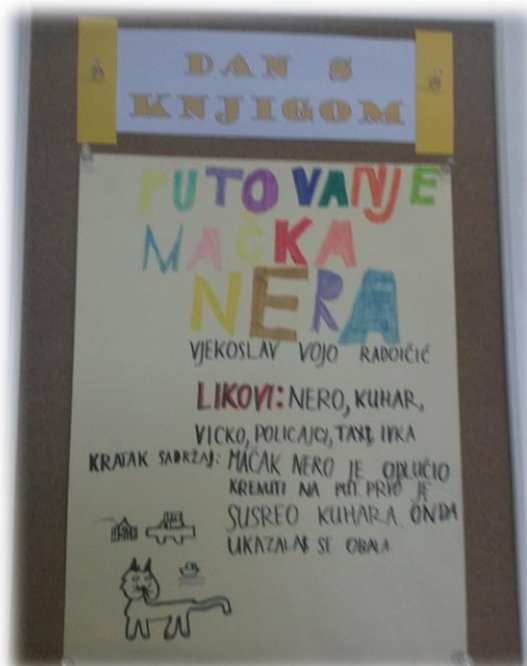 DAN S
KNJIGOM
PUTOVANJE
MAČKA
NERA
VJEKOSLAV VOJO RADOIČIĆ
LIKOVI: NERO, KUHAR,
VICKO, POLICAJCI, TAXI, IVKA
KRATAK SADRŽAJ: MAČAK NERO JE ODLUČIO
KRENUTI NA PUT. PRVO JE
SUSREO KUHARA. ONDA
UKAZALA SE OBALA